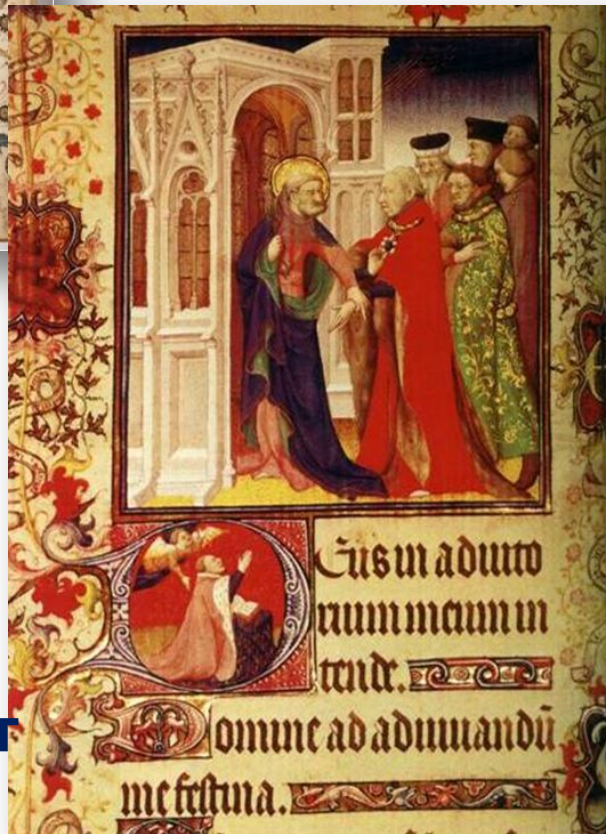 Deus in adiuto
rium meum in
tende.
Domine ad adiuuandū
me festina.
T